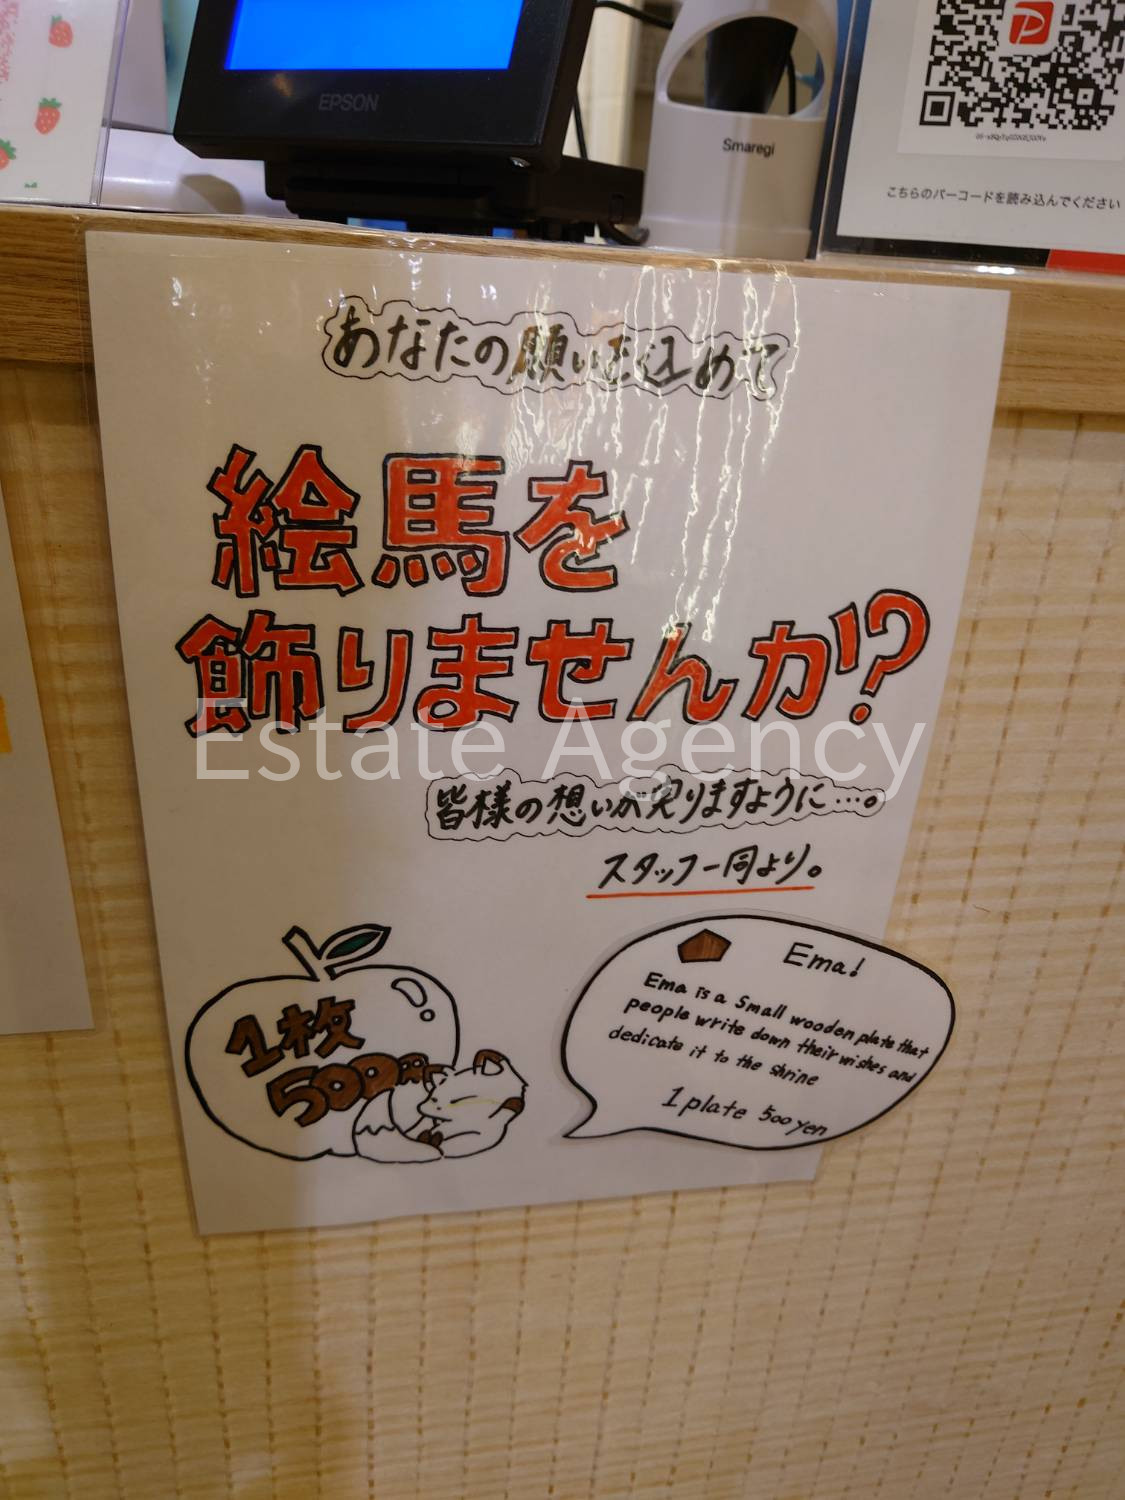 EPSON
Smaregi
こちらのバーコードを読み込んでください
あなたの願いを込めて
絵馬を
飾りませんか!?
Estate Agency
皆様の想いが実りますように…。
スタッフ一同より。
1枚
500円
Ema!
Ema is a small wooden plate that
people write down their wishes and
dedicate it to the shrine
1 plate 500 yen